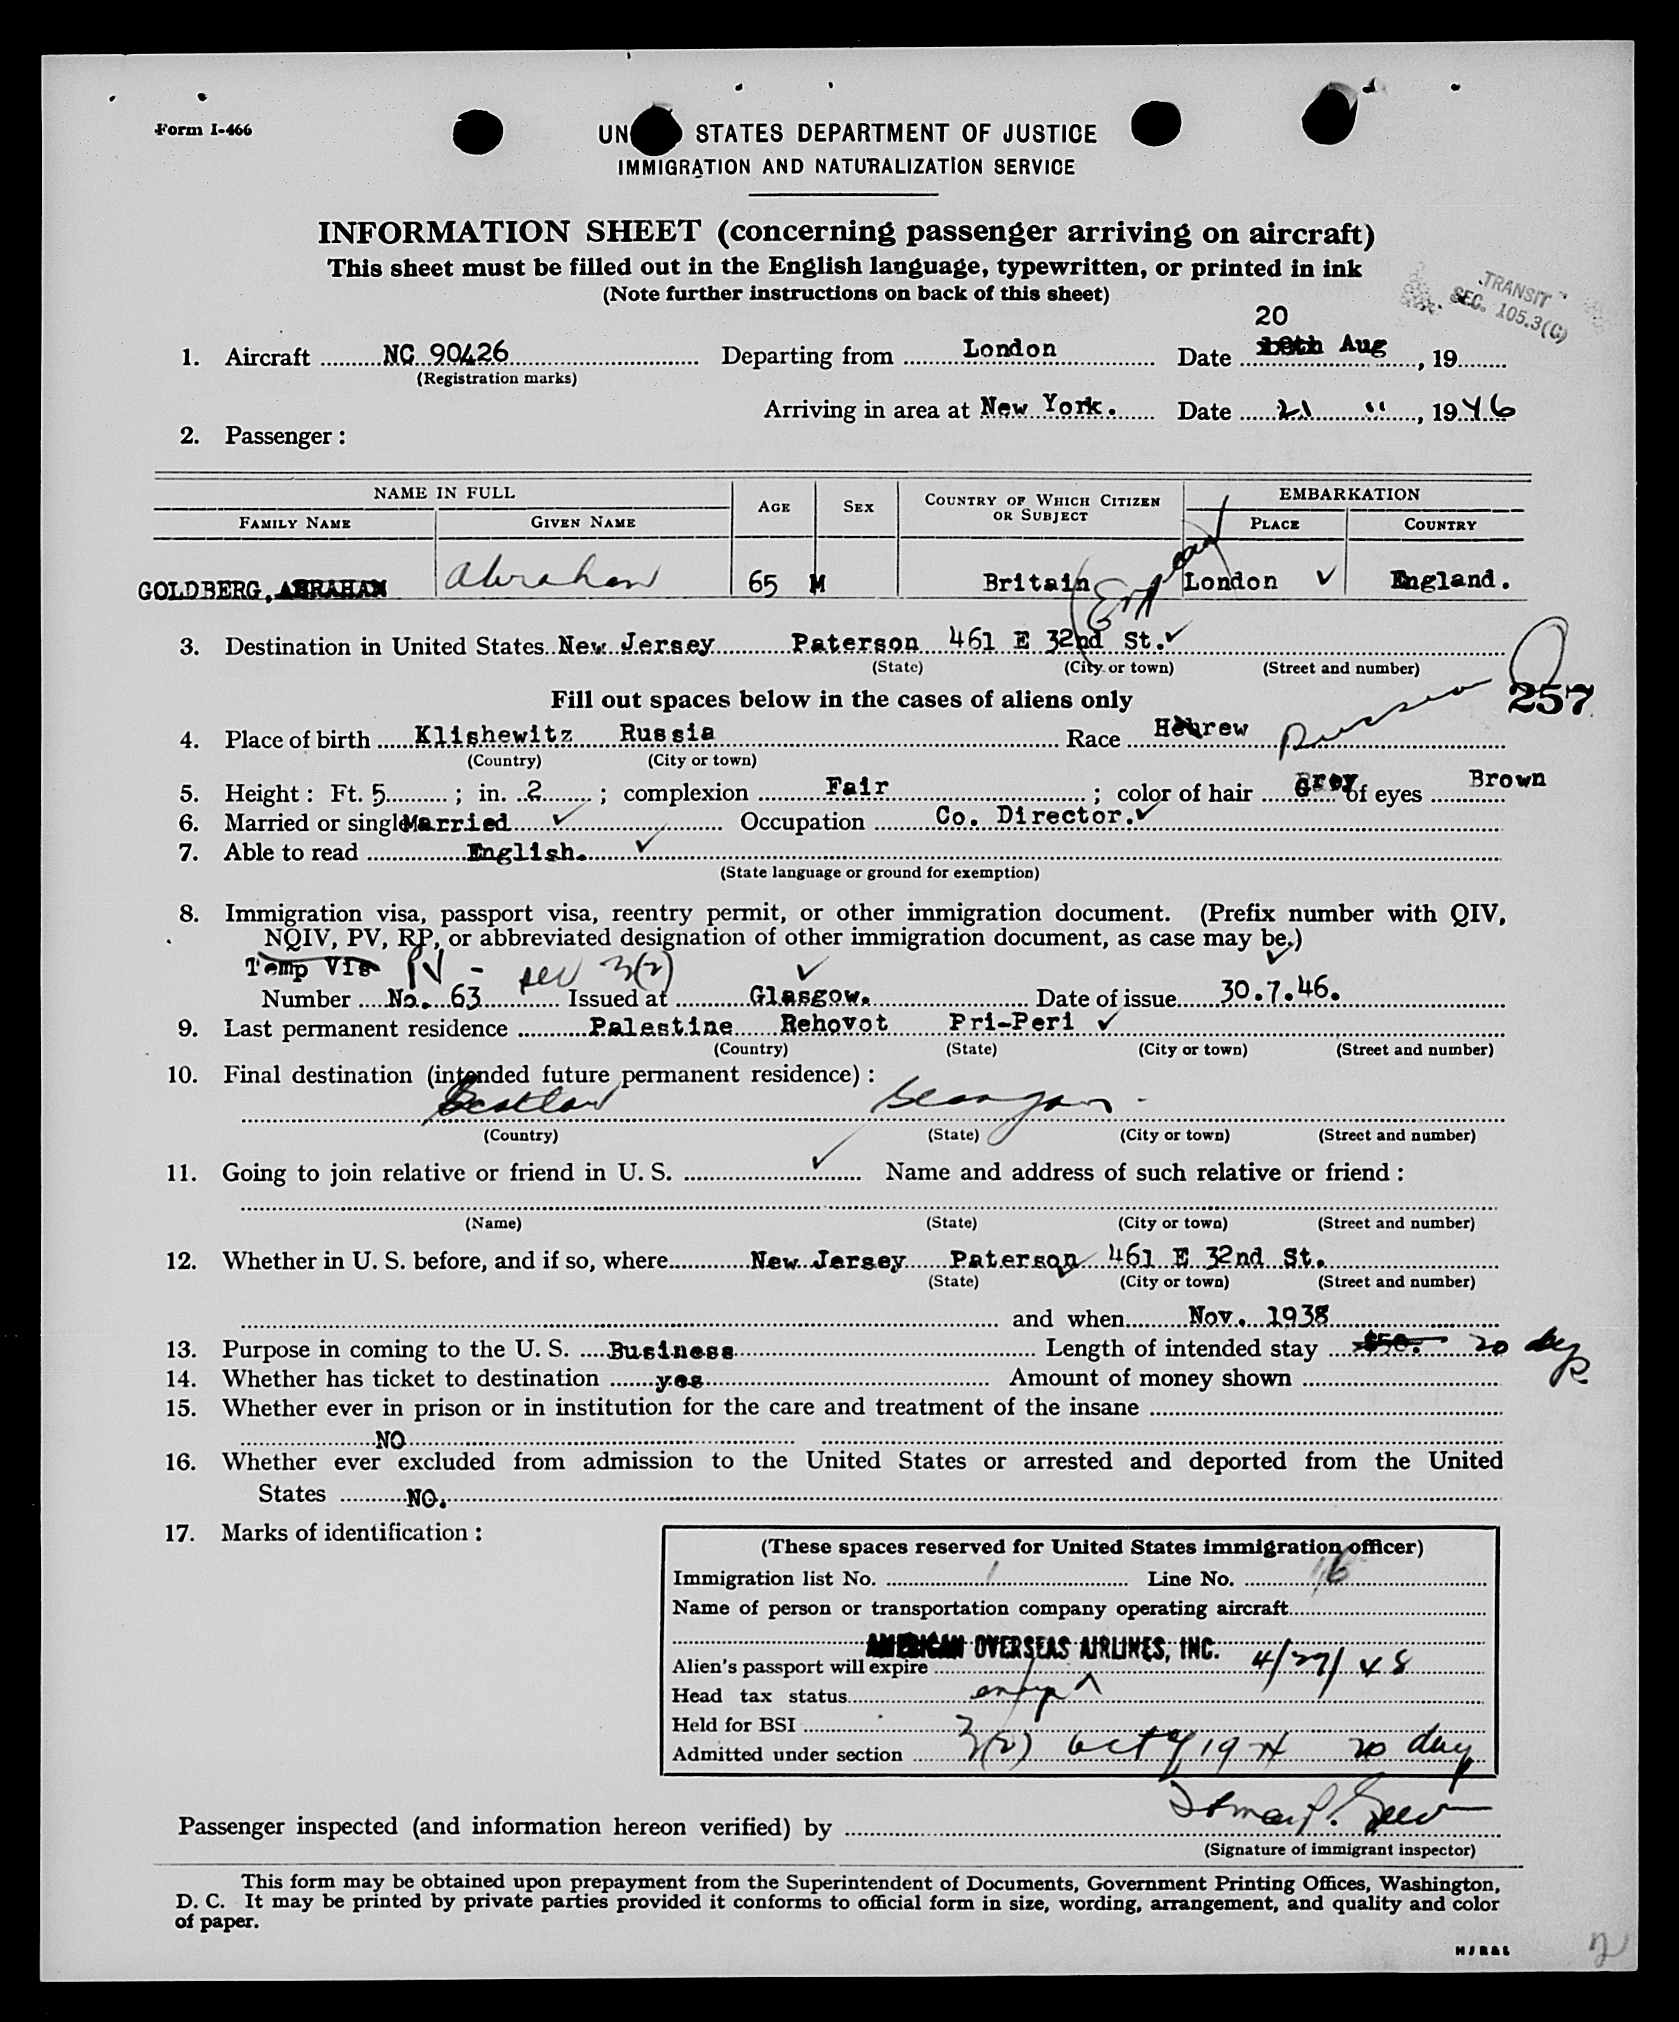 Form I-466
UN STATES DEPARTMENT OF JUSTICE
IMMIGRATION AND NATURALIZATION SERVICE
INFORMATION SHEET (concerning passenger arriving on aircraft)
This sheet must be filled out in the English language, typewritten, or printed in ink
(Note further instructions on back of this sheet)
TRANSIT
SEC. 105.3(C)
20
1. Aircraft NC 90426 Departing from London Date Aug, 19
(Registration marks)
Arriving in area at New York. Date 21 " , 1946
2. Passenger:
NAME IN FULL AGE SEX COUNTRY OF WHICH CITIZEN OR SUBJECT EMBARKATION
FAMILY NAME GIVEN NAME PLACE COUNTRY
GOLDBERG, ABRAHAM Abraham 65 M Britain London ✓ England.
3. Destination in United States New Jersey Paterson 461 E 32nd St. ✓
(State) (City or town) (Street and number)
Fill out spaces below in the cases of aliens only
257
4. Place of birth Klishewitz Russia Race Hebrew Russian
(Country) (City or town)
5. Height: Ft. 5; in. 2; complexion Fair; color of hair Grey of eyes Brown
6. Married or single Married ✓ Occupation Co. Director. ✓
7. Able to read English. ✓
(State language or ground for exemption)
8. Immigration visa, passport visa, reentry permit, or other immigration document. (Prefix number with QIV,
NQIV, PV, RP, or abbreviated designation of other immigration document, as case may be.)
Temp Vis PV - sec 3(2) ✓ ✓
Number No. 63 Issued at Glasgow. Date of issue 30.7.46.
9. Last permanent residence Palestine Rehovot Pri-Peri ✓
(Country) (State) (City or town) (Street and number)
10. Final destination (intended future permanent residence):
Scotland Glasgow
(Country) (State) (City or town) (Street and number)
11. Going to join relative or friend in U. S. ✓ Name and address of such relative or friend:
(Name) (State) (City or town) (Street and number)
12. Whether in U. S. before, and if so, where New Jersey Paterson 461 E 32nd St.
(State) (City or town) (Street and number)
and when Nov. 1938
13. Purpose in coming to the U. S. Business Length of intended stay $50. 20 days
14. Whether has ticket to destination yes Amount of money shown
15. Whether ever in prison or in institution for the care and treatment of the insane
NO
16. Whether ever excluded from admission to the United States or arrested and deported from the United
States NO.
17. Marks of identification:
(These spaces reserved for United States immigration officer)
Immigration list No. 1 Line No. 16
Name of person or transportation company operating aircraft
AMERICAN OVERSEAS AIRLINES, INC.
Alien's passport will expire 4/27/48
Head tax status
Held for BSI
Admitted under section 3(2) act of 1924 20 day
Passenger inspected (and information hereon verified) by
(Signature of immigrant inspector)
This form may be obtained upon prepayment from the Superintendent of Documents, Government Printing Offices, Washington,
D. C. It may be printed by private parties provided it conforms to official form in size, wording, arrangement, and quality and color
of paper.
2